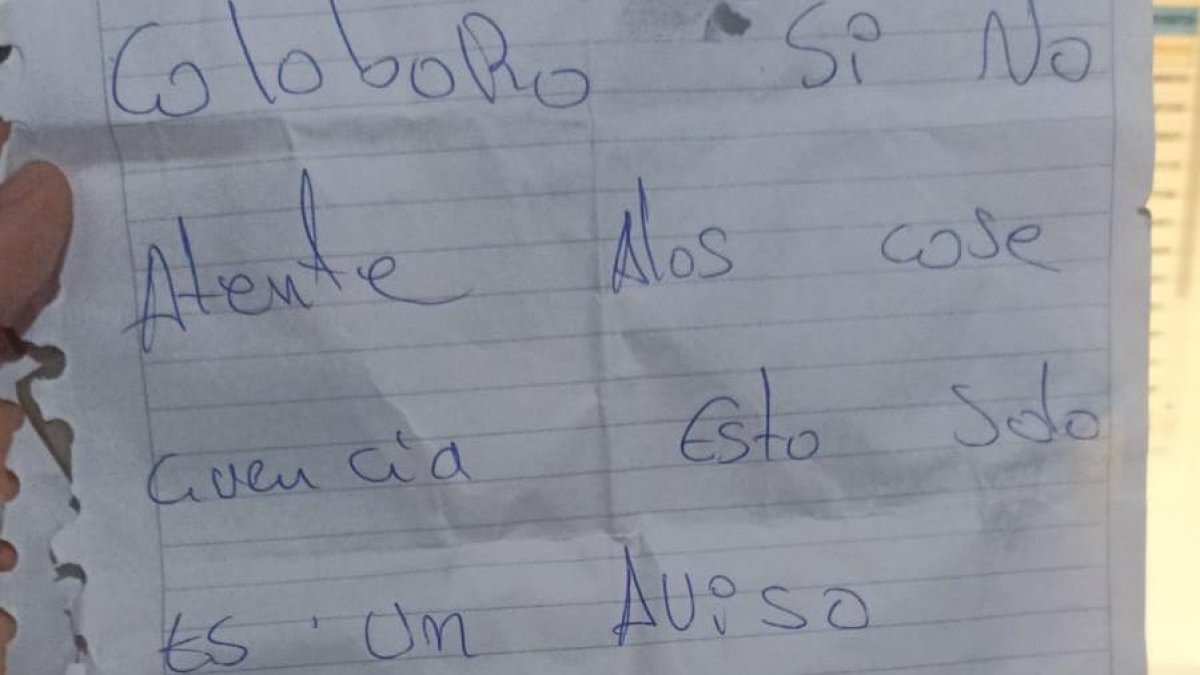 Coloboro Si No
Atente Alos cose
cuencia Esto solo
es un Aviso